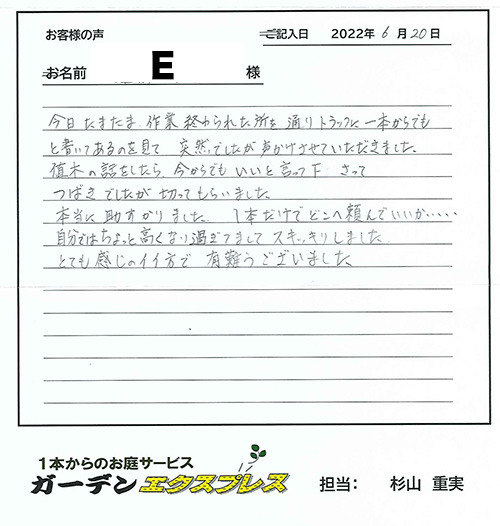 お客様の声
ご記入日 2022年6月20日
お名前 E 様
今日たまたま、作業終わられた所を通りトラックに一本からでも
と書いてあるのを見て 突然でしたが声かけさせていただきました。
植木の話をしたら、今からでもいいと言って下さって
つばきでしたが切ってもらいました。
本当に助すかりました。 1本だけでどこへ頼んでいいか・・・・・
自分ではちょっと高くなり過ぎてましてスキッキリしました
とても感じのイイ方で 有難うございました。
1本からのお庭サービス
ガーデンエクスプレス
担当: 杉山 重実